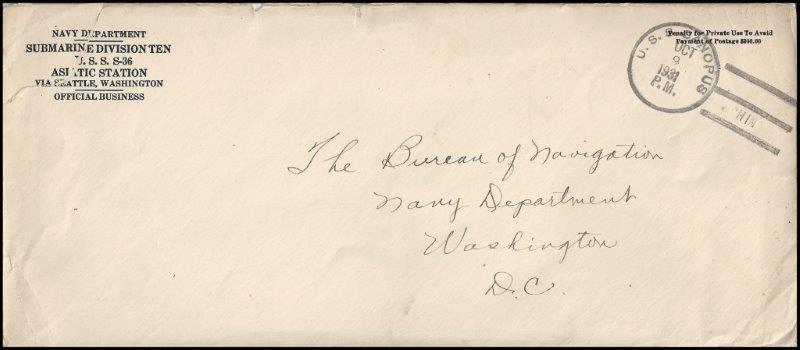 NAVY DEPARTMENT
SUBMARINE DIVISION TEN
U. S. S. S-36
ASIATIC STATION
VIA SEATTLE, WASHINGTON
OFFICIAL BUSINESS
Penalty for Private Use To Avoid
Payment of Postage $300.00
U. S. S. CANOPUS
OCT
9
1931
P.M.
CHIN
The Bureau of Navigation
Navy Department
Washington
D.C.